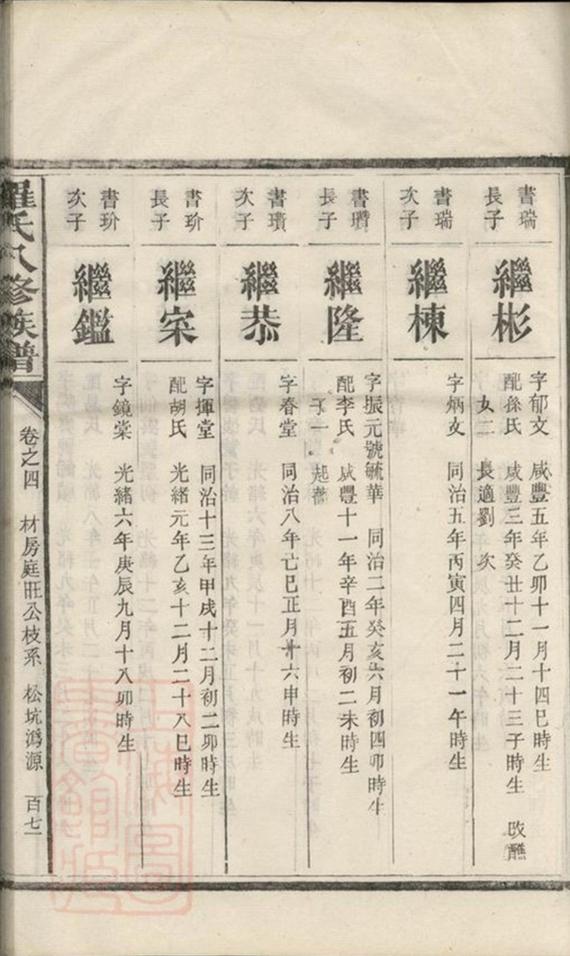 書瑞
長子
繼彬
字郁文 咸豐五年乙卯十一月十四巳時生
配孫氏 咸豐三年癸丑十二月二十三子時生 改醮
女二 長適劉 次
書瑞
次子
繼棟
字炳文 同治五年丙寅四月二十一午時生
書瓚
長子
繼隆
字振元號毓華 同治二年癸亥六月初四卯時生
配李氏 咸豐十一年辛酉五月初二未時生
子一 起
書瓚
次子
繼恭
字春堂 同治八年亡巳正月廿六申時生
書玠
長子
繼寀
字揮堂 同治十三年甲戌十二月初二卯時生
配胡氏 光緒元年乙亥十二月二十八巳時生
書玠
次子
繼鑑
字鏡棠 光緒六年庚辰九月十八卯時生
羅氏八修族譜
卷之四 材房庭旺公枝系 松坑溈源 百七一